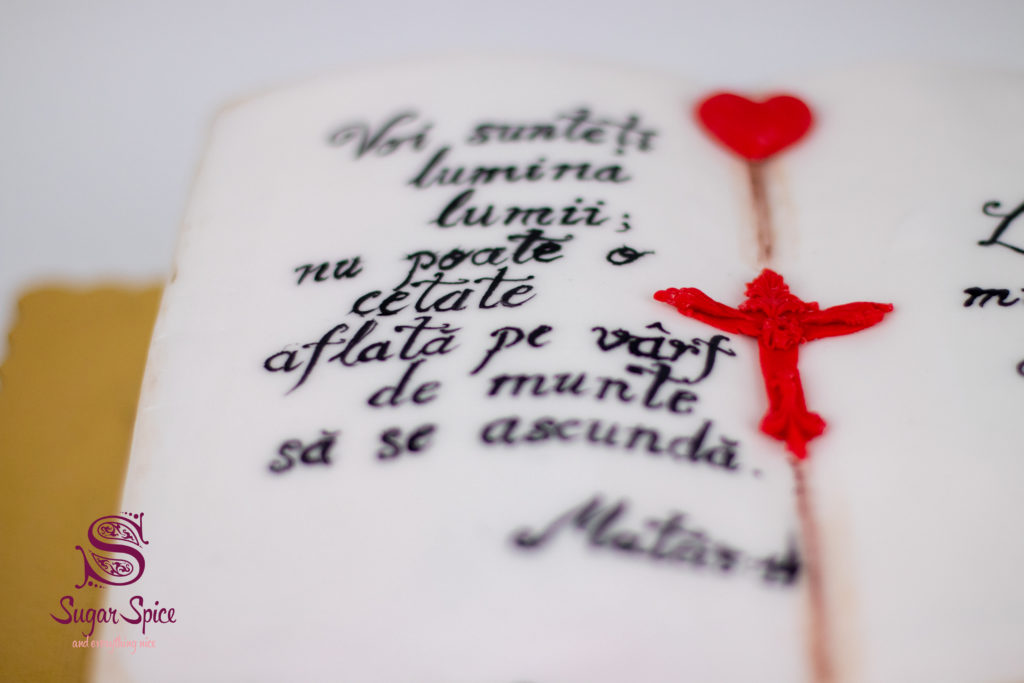 Voi sunteți
lumina
lumii;
nu poate o
cetate
aflată pe vârf
de munte
să se ascundă.
Sugar Spice
and everything nice